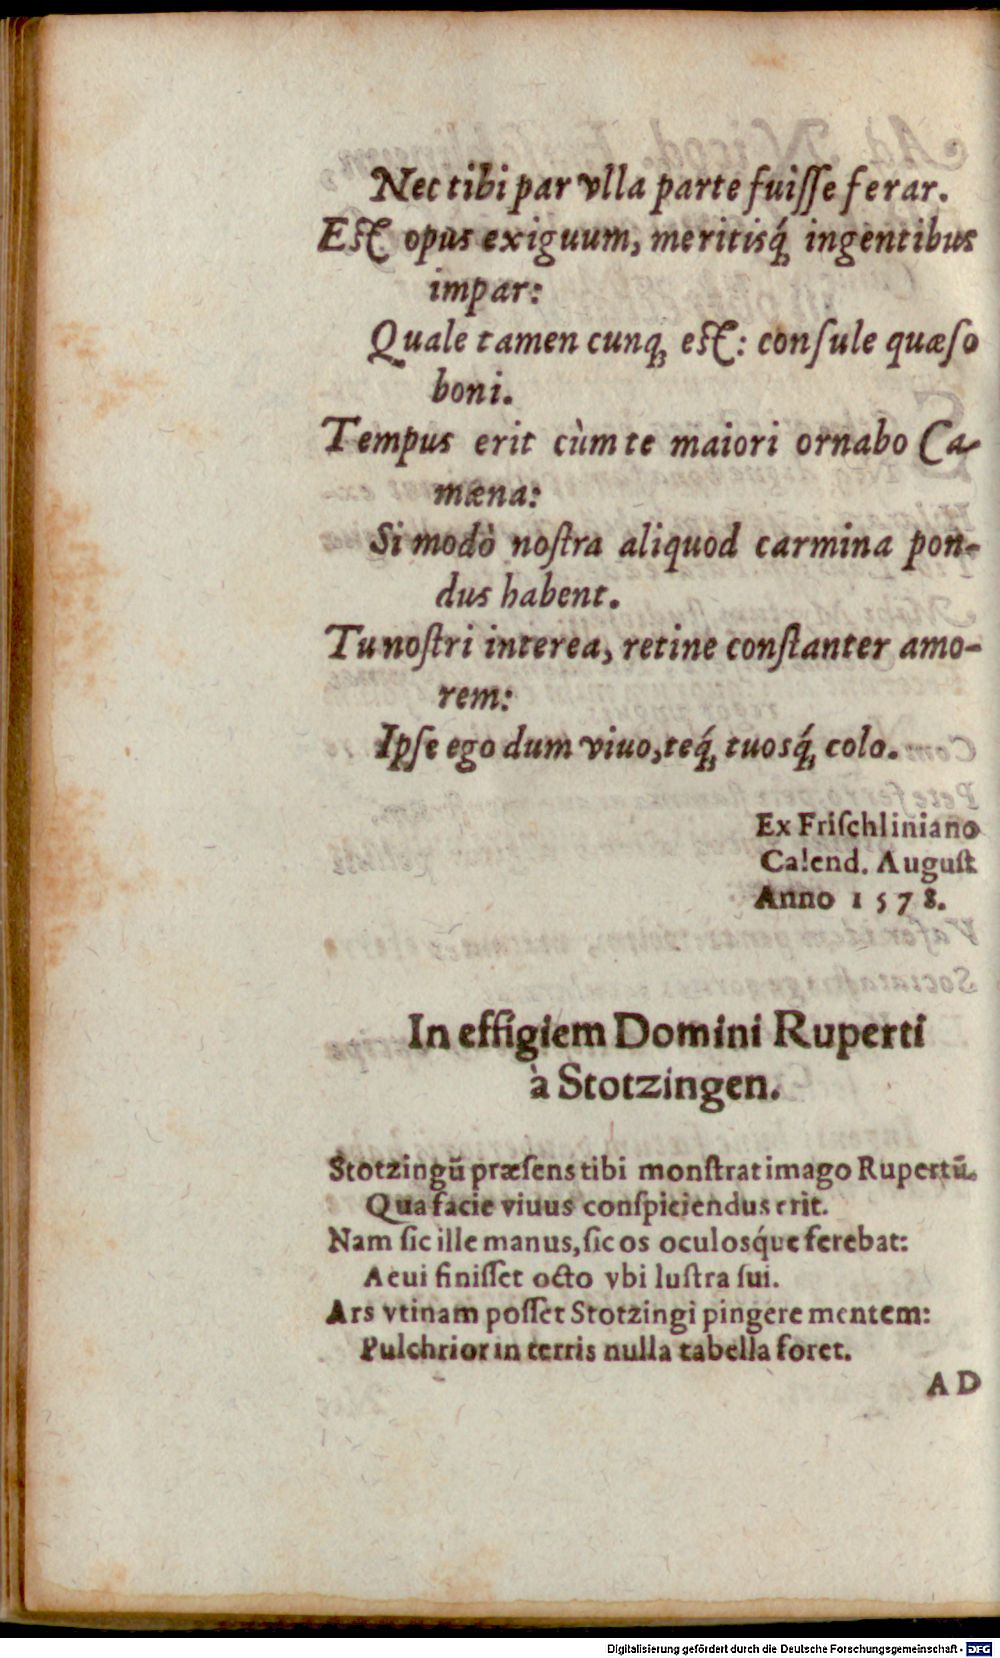 Nec tibi par vlla parte fuiſſe ferar.
Eſt opus exiguum, meritisq́; ingentibus
impar:
Quale tamen cunq; eſt: conſule quæſo
boni.
Tempus erit cùm te maiori ornabo Ca-
mæna:
Si modò noſtra aliquod carmina pon-
dus habent.
Tu noſtri interea, retine conſtanter amo-
rem:
Ipſe ego dum viuo, teq́; tuosq́; colo.
Ex Friſchliniano
Calend. Auguſt
Anno 1578.
In effigiem Domini Ruperti
à Stotzingen.
Stotzingũ præſens tibi monſtrat imago Rupertũ.
Qua facie viuus conſpiciendus erit.
Nam ſic ille manus, ſic os oculosq́ue ferebat:
Aeui finiſſet octo vbi luſtra ſui.
Ars vtinam poſſet Stotzingi pingere mentem:
Pulchrior in terris nulla tabella foret.
AD
Digitalisierung gefördert durch die Deutsche Forschungsgemeinschaft - DFG